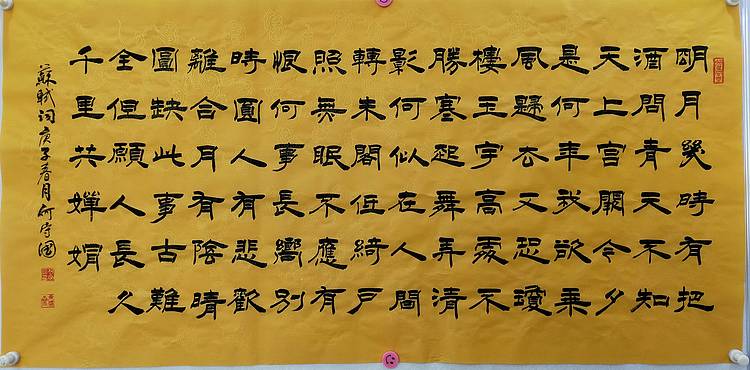 明月幾時有把
酒問青天不知
天上宮闕今夕
是何年我欲乘
風歸去又恐瓊
樓玉宇高處不
勝寒起舞弄清
影何似在人間
轉朱閣低綺戶
照無眠不應有
恨何事長嚮別
時圓人有悲歡
離合月有陰晴
圓缺此事古難
全但願人長久
千里共嬋娟
蘇軾詞庚子春月何守國